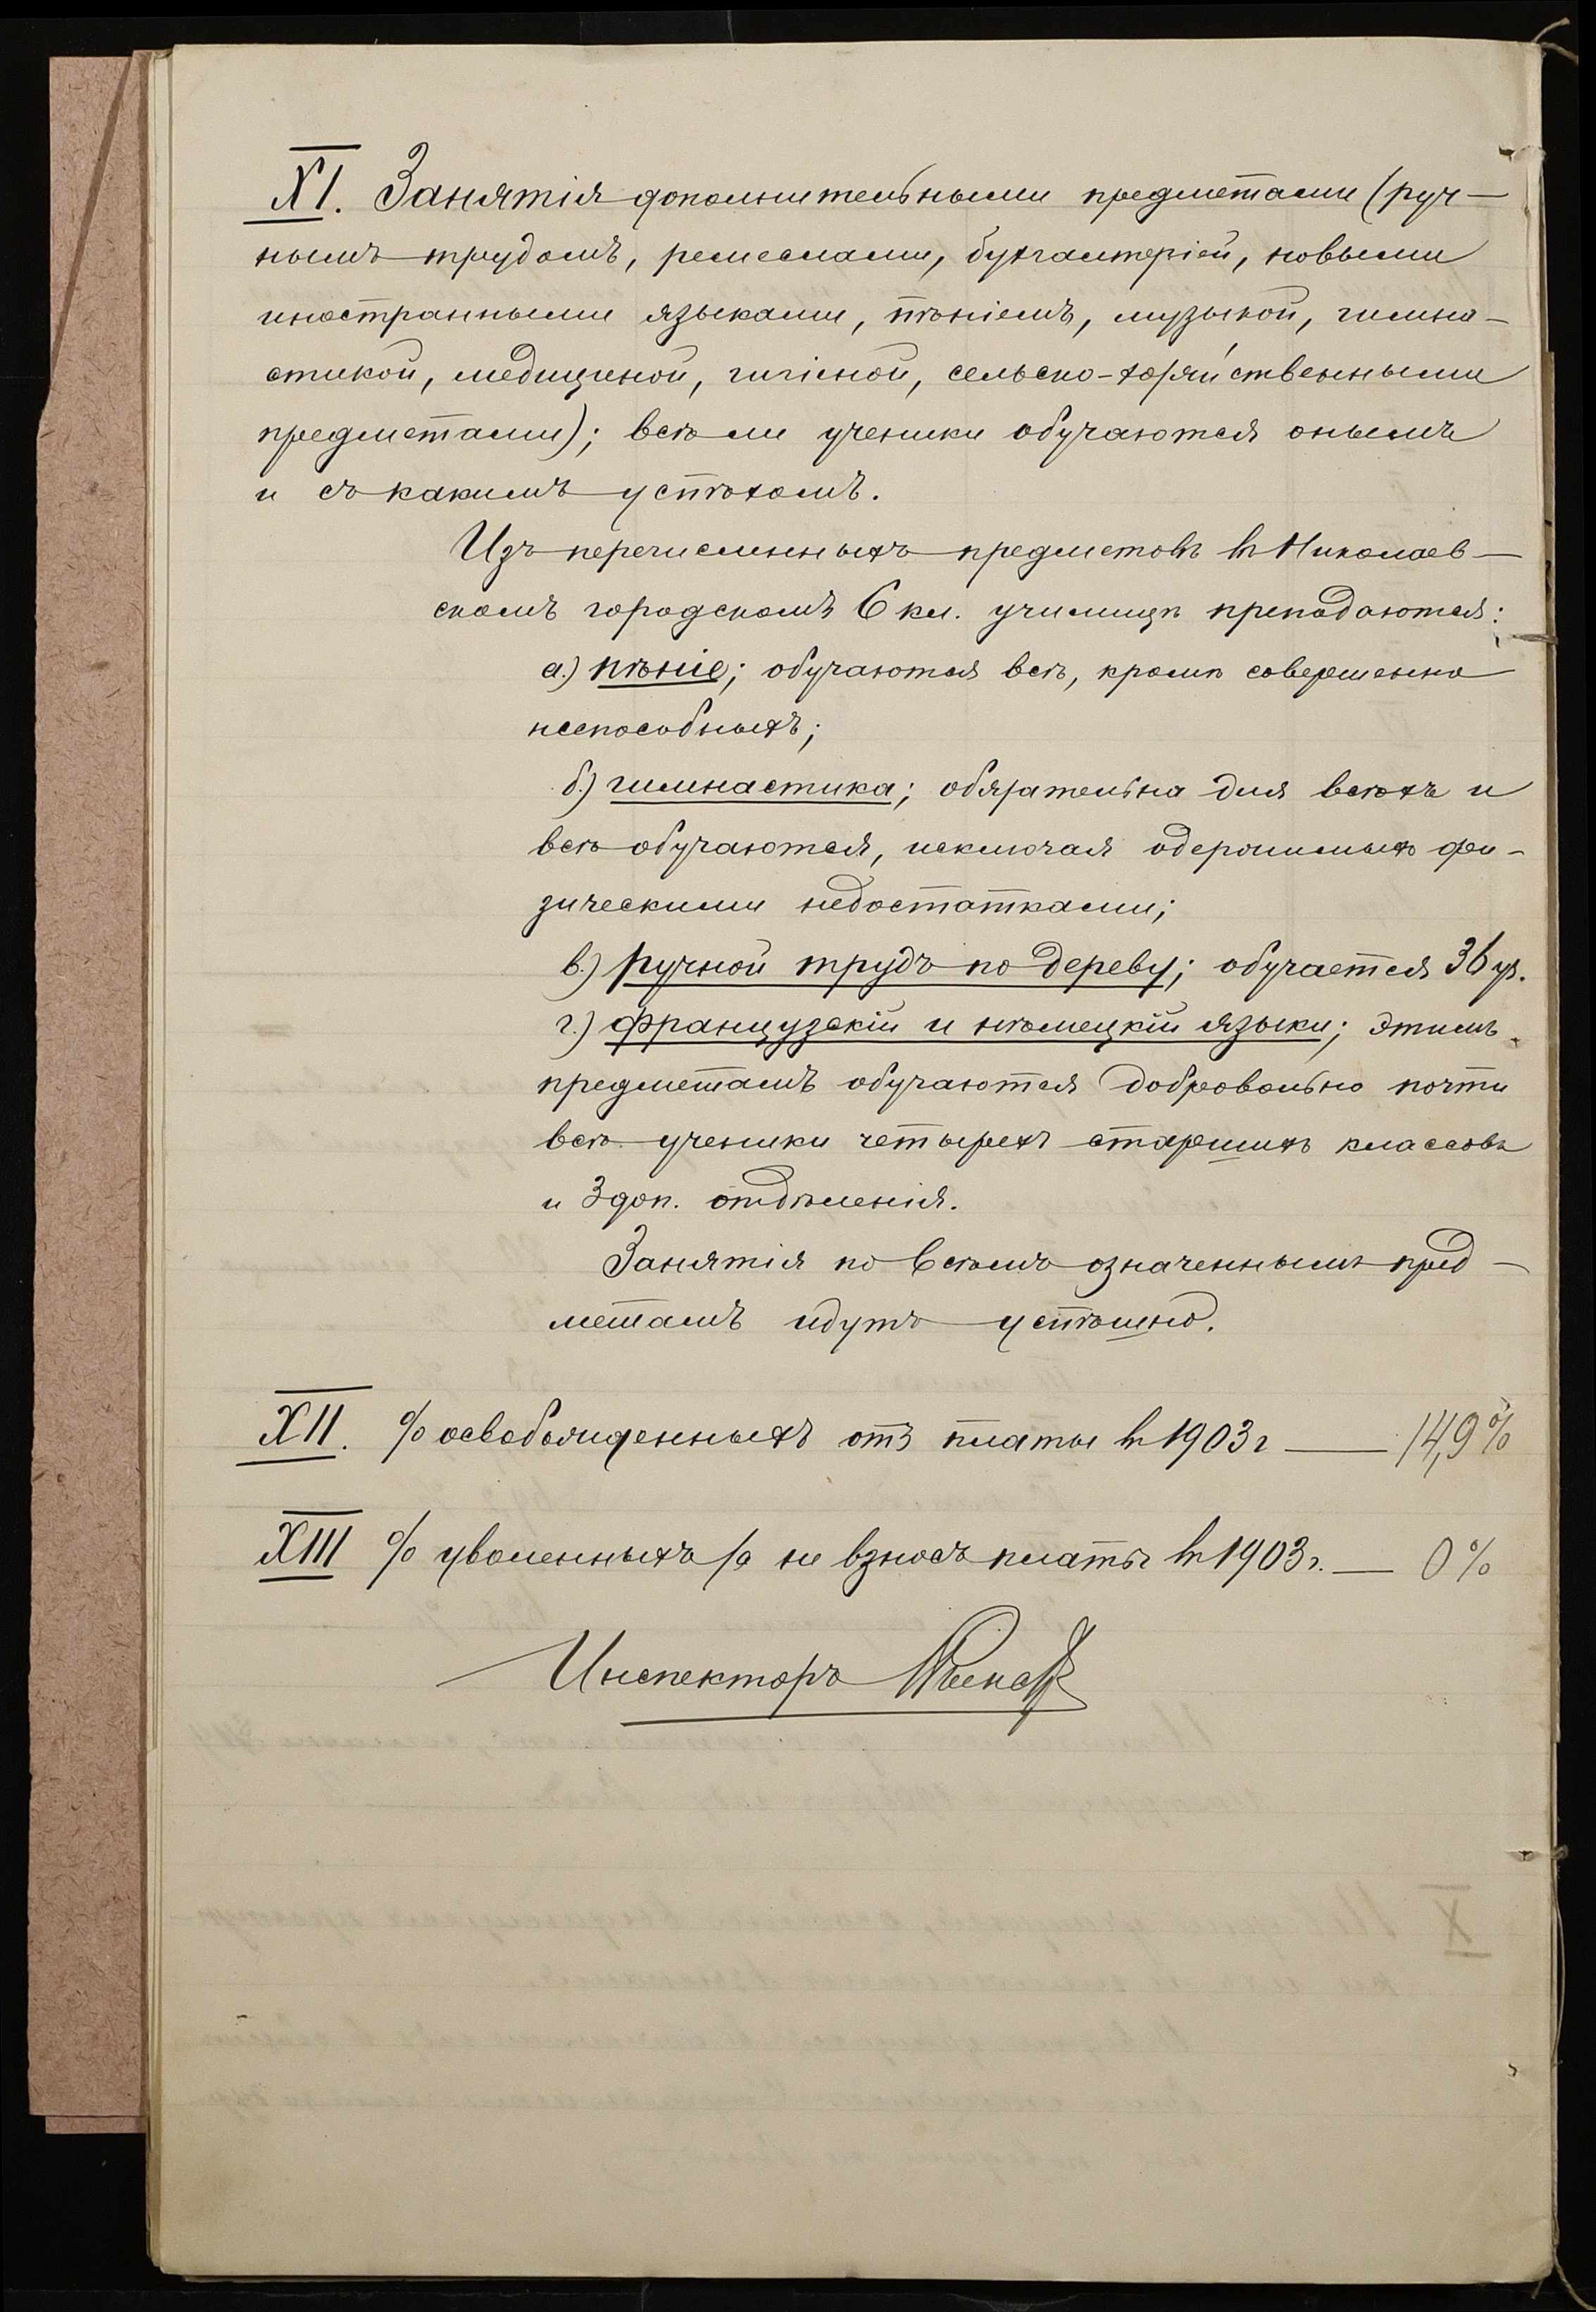 XI. Занятія дополнительными предметами (руч-
нымъ трудомъ, ремеслами, бухгалтеріей, новыми
иностранными языками, пѣніемъ, музыкой, гимна-
стикой, медициной, гигіеной, сельско-хозяйственными
предметами); всѣ ли ученики обучаются онымъ
и съ какимъ успѣхомъ.
Изъ перечисленныхъ предметовъ въ Николаев-
скомъ городскомъ 6 кл. училищѣ преподаются:
а.) пѣніе; обучаются всѣ, кромѣ совершенно
неспособныхъ;
б.) гимнастика; обязательна для всѣхъ и
всѣ обучаются, исключая одержимыхъ фи-
зическими недостатками;
в.) ручной трудъ по дереву; обучается 36 уч.
г.) французскій и нѣмецкій языки; этимъ
предметамъ обучаются добровольно почти
всѣ ученики четырехъ старшихъ классовъ
и 3 доп. отдѣленія.
Занятія по всѣмъ означеннымъ пред-
метамъ идутъ успѣшно.
XII. % освобожденныхъ отъ платы въ 1903 г — 14,9%
XIII % уволенныхъ за не взносъ платы въ 1903 г. — 0%
Инспекторъ